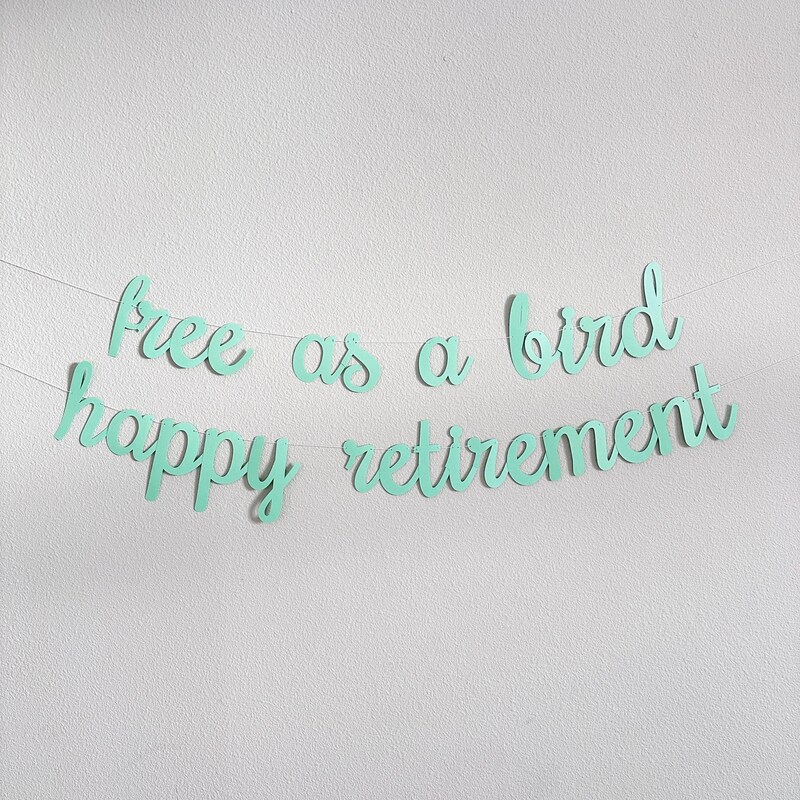 free as a bird
happy retirement